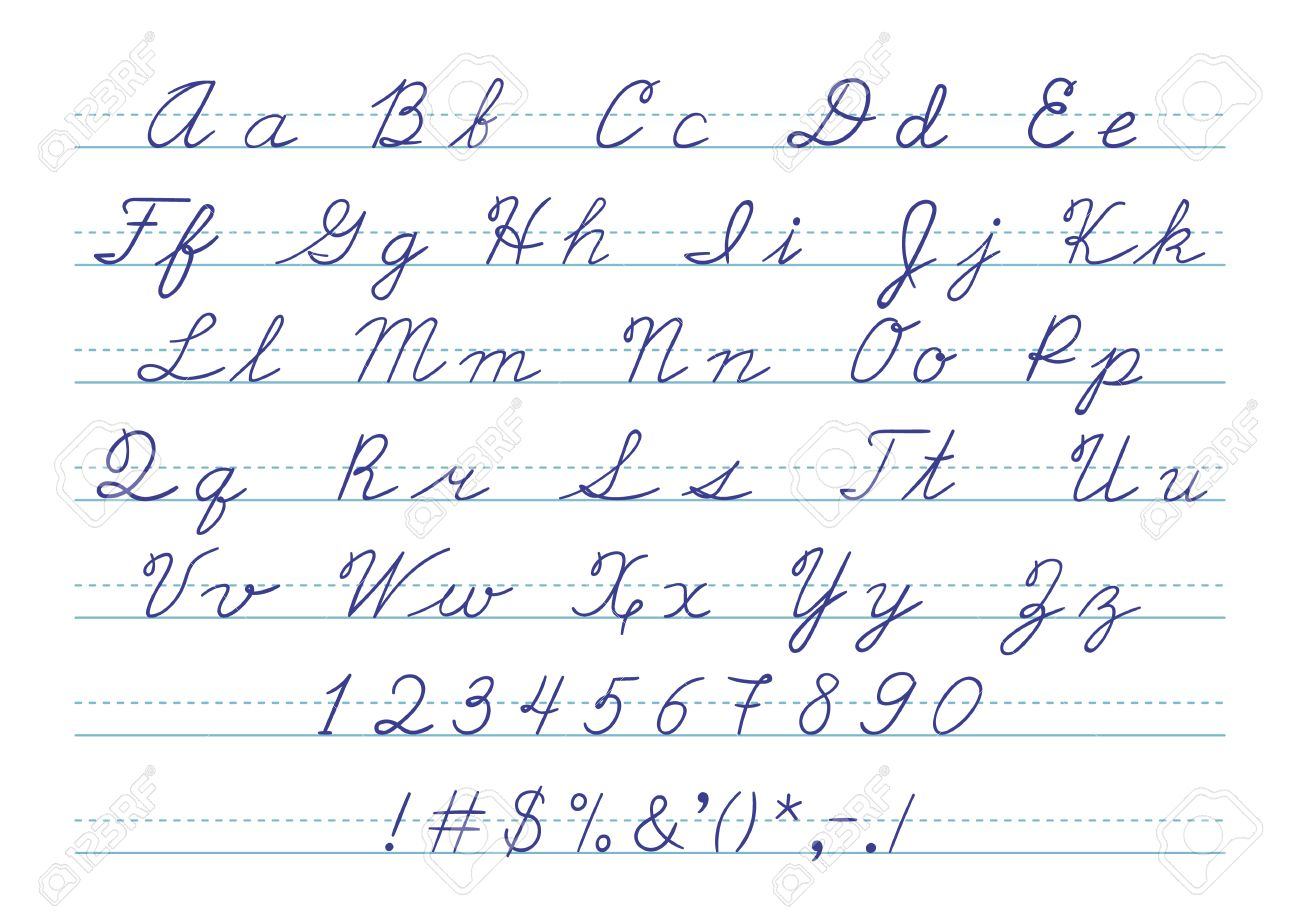 A a B b C c D d E e
F f G g H h I i J j K k
L l M m N n O o P p
Q q R r S s T t U u
V v W w X x Y y Z z
1 2 3 4 5 6 7 8 9 0
! # $ % & ' ( ) * , - . /
123RF
123RF
123RF
123RF
123RF
123RF
123RF